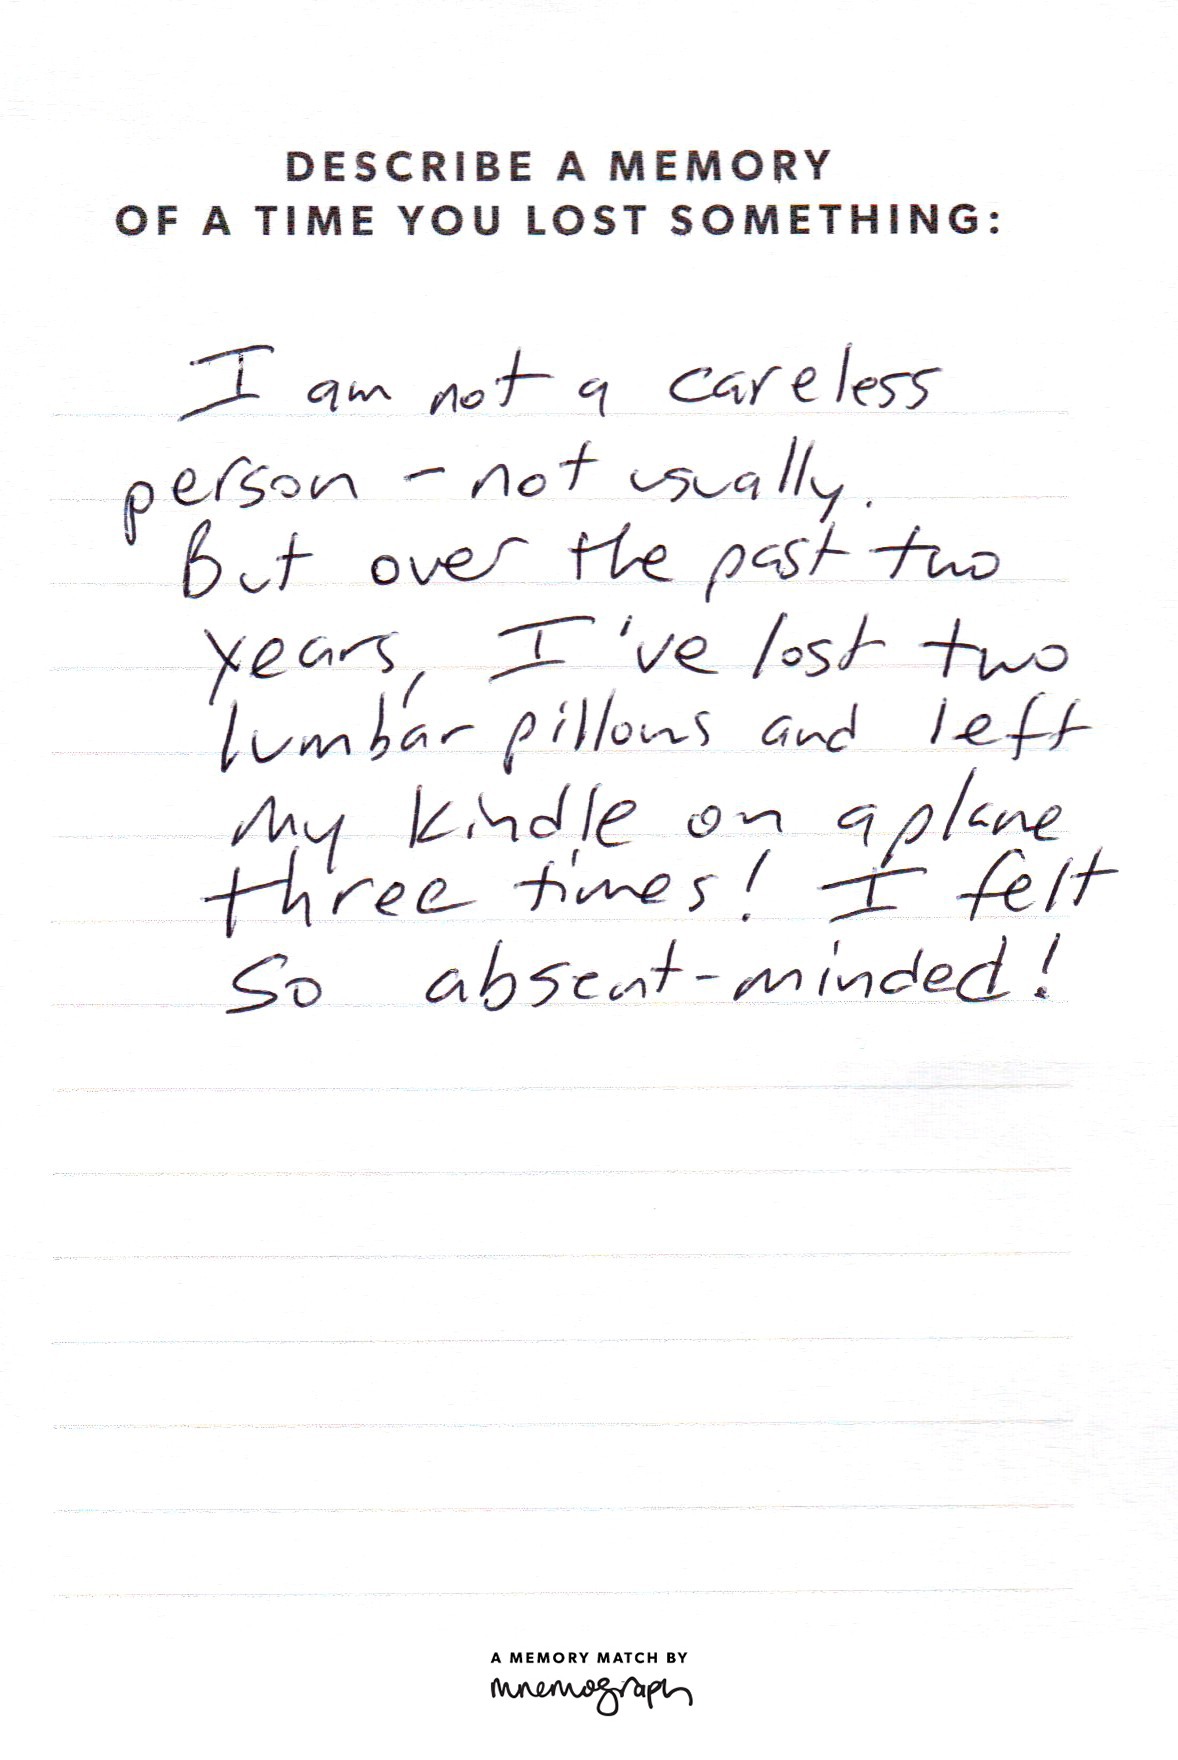 DESCRIBE A MEMORY
OF A TIME YOU LOST SOMETHING:
I am not a careless
person – not usually.
But over the past two
years, I've lost two
lumbar pillows and left
my kindle on a plane
three times! I felt
so absent-minded!
A MEMORY MATCH BY
mnemograph